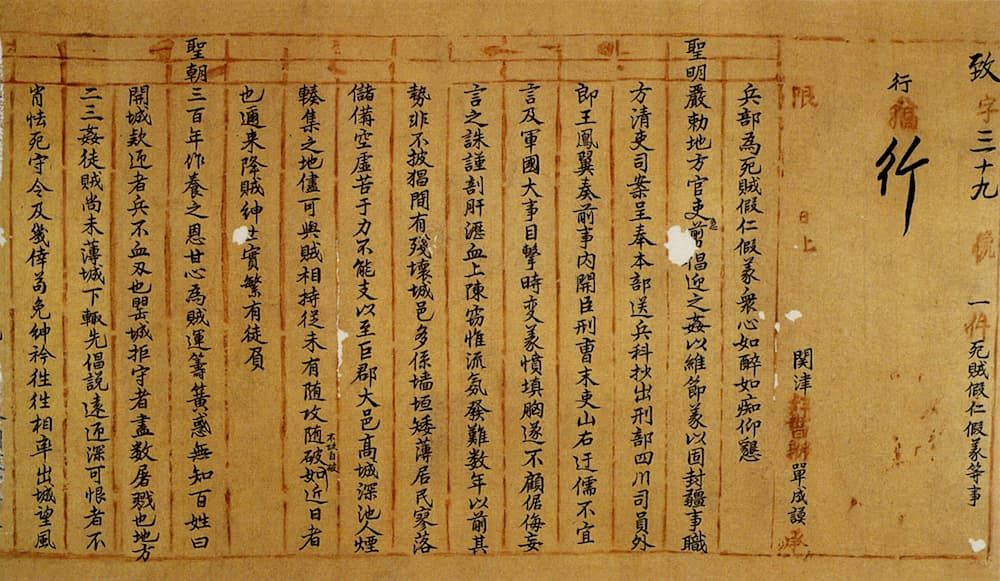 致字三十九號 一件死賊假仁假義等事
行稿 行
限 日上 関津 單成謨承
兵部為死賊假仁假義衆心如醉如痴仰懇
聖明嚴勅地方官吏急剪倡迎之姦以維節義以固封疆事職
方清吏司案呈奉本部送兵科抄出刑部四川司員外
郎王鳳翼奏前事内開臣刑曹末吏山右迂儒不宜
言及軍國大事目擊時変義憤填胸遂不顧倨侮妄
言之誅謹剖肝瀝血上陳窃惟流氛發難数年以前其
勢非不披猖間有殘壊城邑多係墻垣矮薄居民寥落
儲備空虛苦于力不能支以至巨郡大邑髙城深池人煙
輳集之地儘可與賊相持從未有随攻随破不攻自破如近日者
也邇来降賊紳士實繁有徒負
聖朝三百年作養之恩甘心為賊運籌簧惑無知百姓曰
開城欵迎者兵不血刃也嬰城拒守者盡数屠戮也地方
二三姦徒賊尚未薄城下輒先倡説遠迎深可恨者不
肖怯死守令及幾倖苟免紳衿徃徃相率出城望風